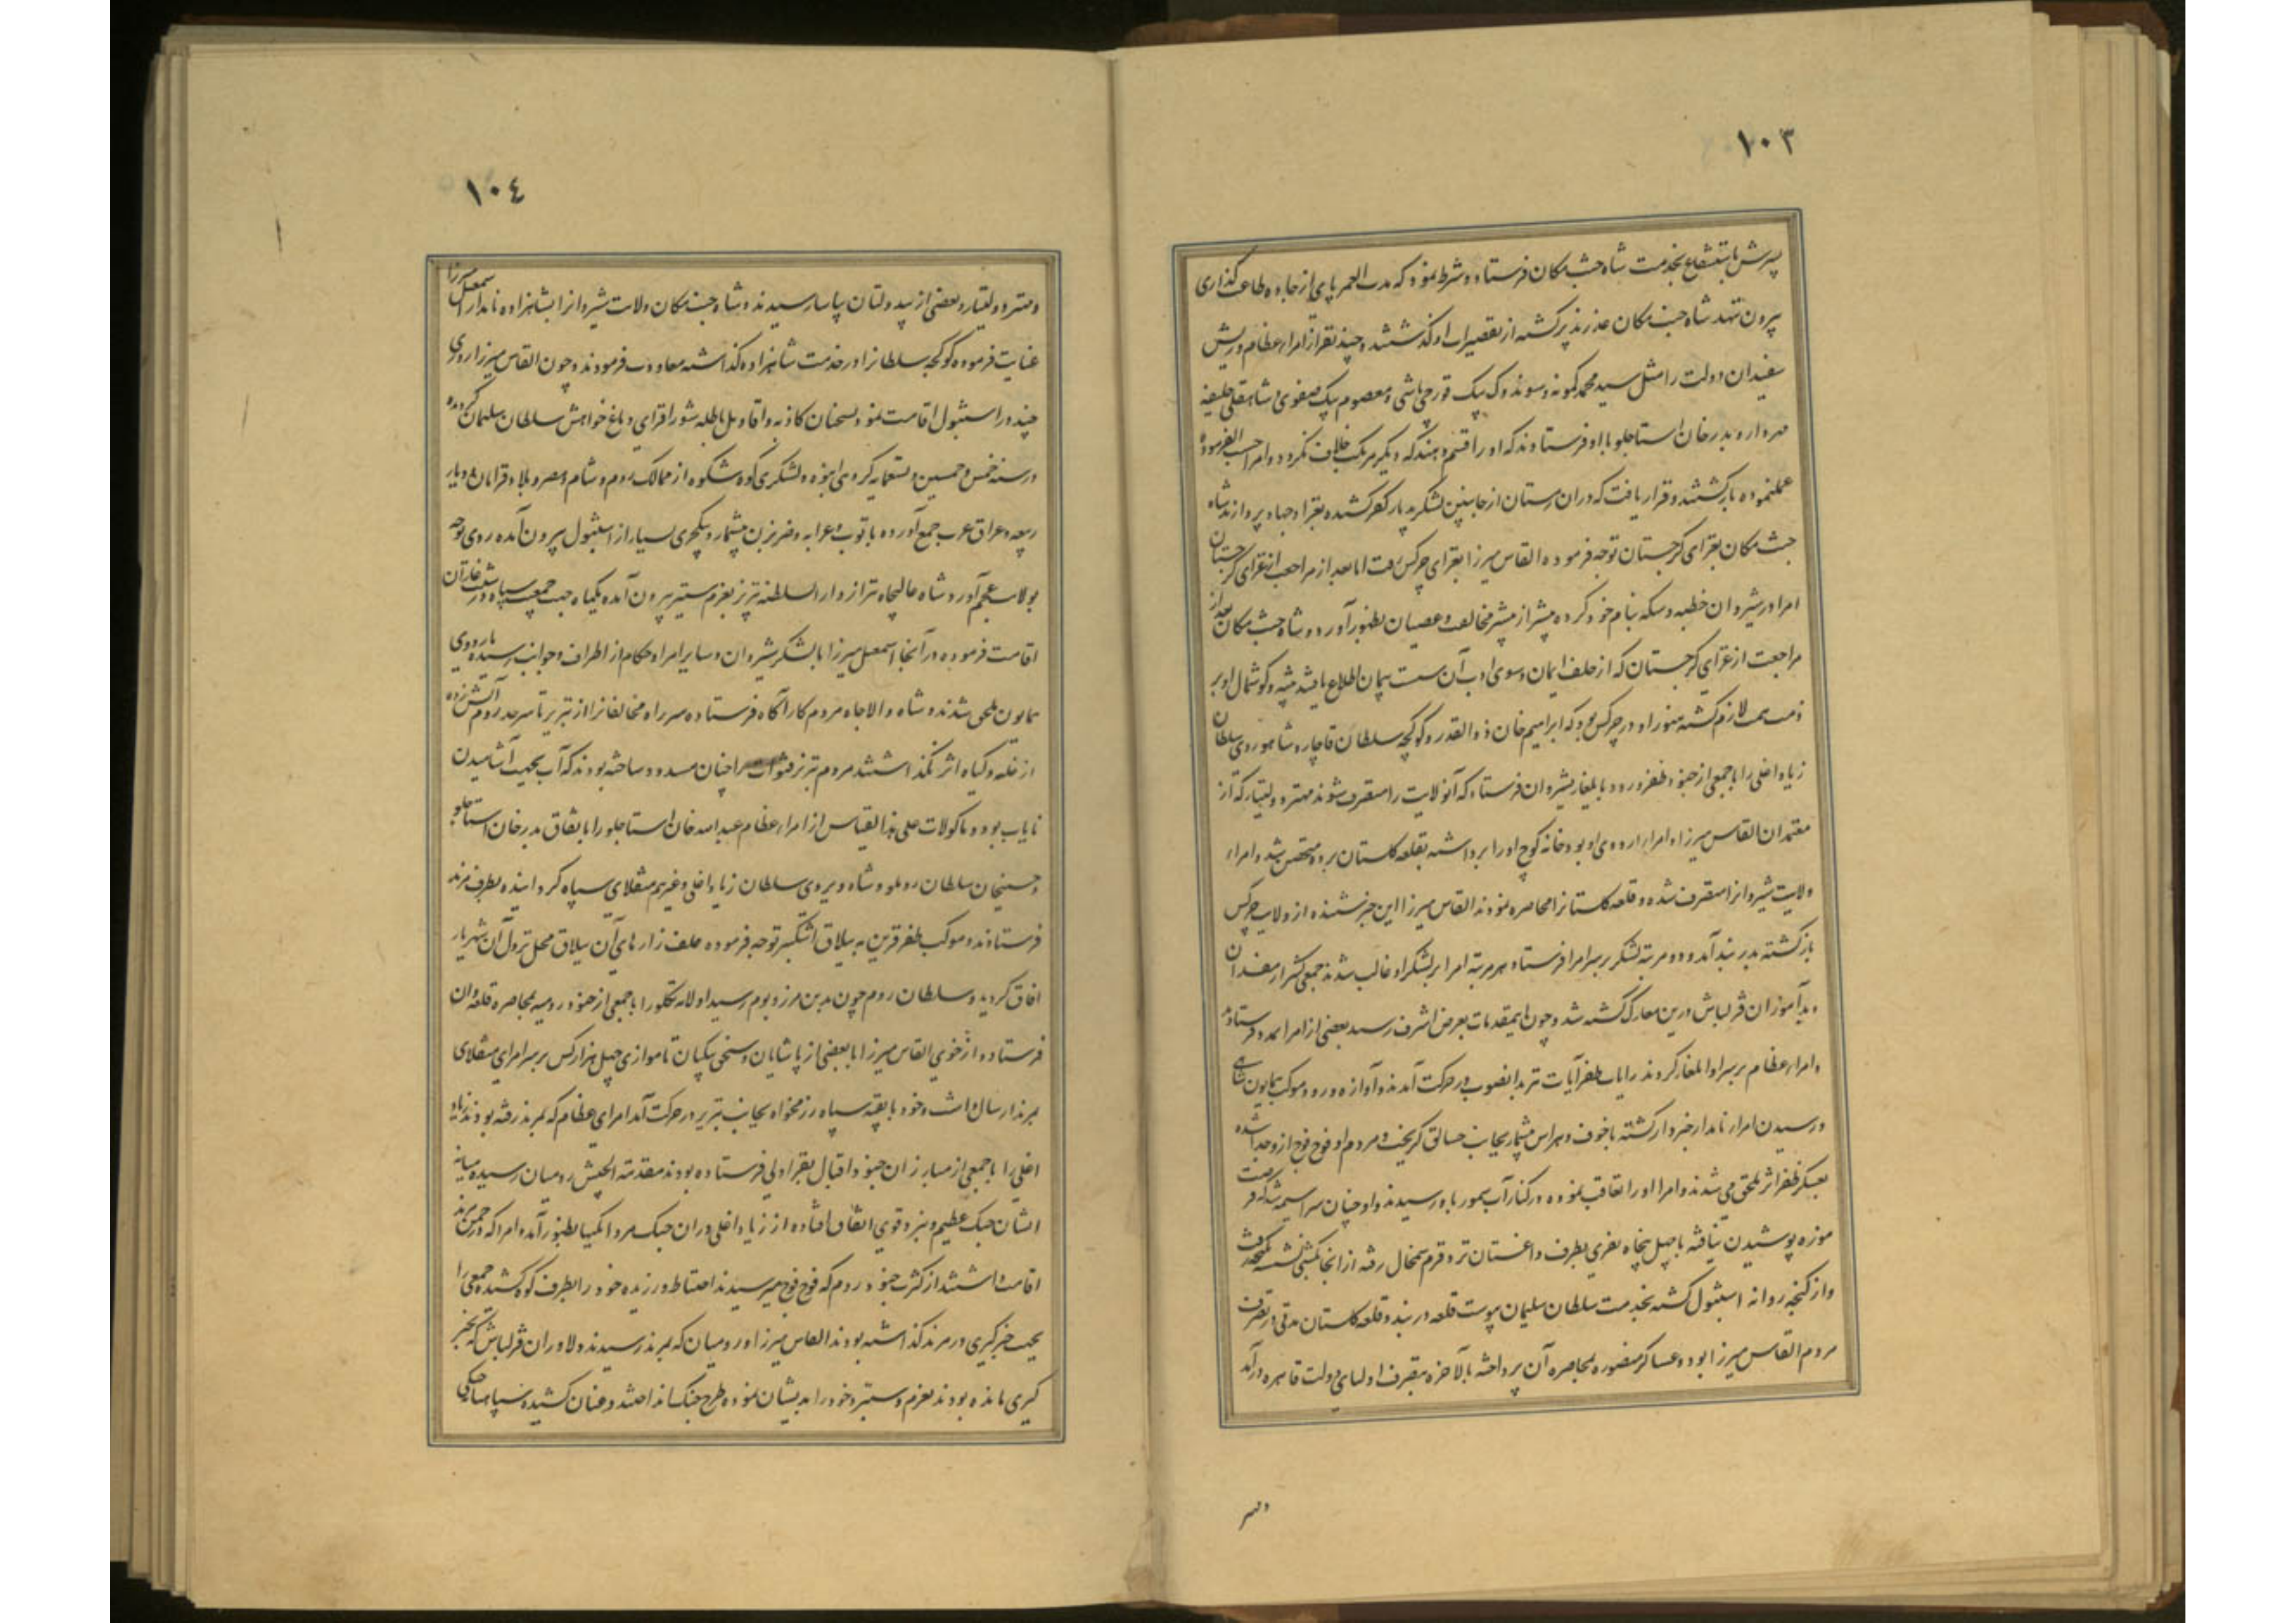 ١٠٣
پسرش باستشفاع بخدمت شاه جنت مکان فرستاد و شرط نمود که مدت العمر پای از جاده طاعت گذاری
بیرون ننهد شاه جنت مکان عذر پذیر گشته از تقصیرات او گذشتند و چند نفر از امراء عظام و ریش
سفیدان دولت را مثل سید محمد کمونه و سوندوک بیک قورچی باشی و معصوم بیک صفوی و شاهقلی خلیفه
مهردار و بدرخان استاجلو با او فرستادند که او را قسم دهند که دیگر مرتکب خلاف نگردد و امرا حسب الفرموده
عملنموده بازگشتند و قرار یافت که در آن زمستان از جانبین لشکر بدیار کفر کشیده بغزا و جهاد پردازند شاه
جنت مکان بغزای گرجستان توجه فرموده القاس میرزا بغزای چرکس رفت اما بعد از مراجعت از غزای گرجستان
امرا در شیروان خطبه و سکه بنام خود کرده بیشتر از پیشتر مخالفت و عصیان بظهور آورد و شاه جنت مکان بعد از
مراجعت از غزای گرجستان که از خلف ایمان و سوی ادب آن سست پیمان اطلاع یافتند تنبیه و گوشمال او بر
ذمت همت لازم گشته هنوز او در چرکس بود که ابراهیم خان ذوالقدر و گوکچه سلطان قاجار و شاهوردی سلطان
زیاد اغلی را با جمعی از جنود ظفر ورود بایلغار بشیروان فرستاد که آنولایت را متصرف شوند مهتر دولتیار که از
معتمدان القاس میرزا و امراء اردوی او بود خانه کوچ او را برداشته بقلعه گلستان برده متحصن شد و امراء
ولایت شیروانرا متصرف شده و قلعه گلستانرا محاصره نمودند القاس میرزا این خبر شنیده از ولایت چرکس
بازگشته بدربند آمد و دو مرتبه لشکر بر سر امرا فرستاد هر مرتبه امرا بر لشکر او غالب شدند جمعی کثیر از مفسدان
و بدآموزان قزلباش درین معارک کشته شد و چون اینمقدمات بعرض اشرف رسید بعضی از امرا بمدد فرستادند
و امراء عظام بر سر او ایلغار کردند رایات ظفر آیات نیز بدانصوب در حرکت آمدند و آوازه ورود موکب همایون شاهی
و رسیدن امراء نامدار خبردار گشته با خوف و هراس بیشمار بجانب خنالق گریخت و مردم او فوج فوج از او جدا شده
بعسکر ظفر اثر ملحق می شدند و امرا او را تعاقب نموده در کنار آب سمور باو رسیدند و او چنان سراسیمه شد که فرصت
موزه پوشیدن نیافته با چهل پنجاه نفری بطرف داغستان نزد قرم شمخال رفته از آنجا بکشتی نشسته بکفه رفت
و از کفه روانه استنبول گشته بخدمت سلطان سلیمان پیوست قلعه دربند و قلعه گلستان مدتی در تصرف
مردم القاس میرزا بود و عساکر منصوره بمحاصره آن پرداخته بالاخره بتصرف اولیای دولت قاهره درآمد
و مهتر
١٠٤
و مهتر دولتیار و بعضی از بیدولتان بیاسا رسیدند و شاه جنت مکان ولایت شیروانرا بشاهزاده نامدار اسمعیل میرزا
عنایت فرموده گوکچه سلطانرا در خدمت شاهزاده گذاشته معاودت فرمودند و چون القاس میرزا روزی
چند در استنبول اقامت نمود بسخنان کاذبه و اقاویل باطله شورافزای دماغ خواهش سلطان سلیمان گردیده
در سنه خمس و خمسین و تسعمایه گروهی انبوه و لشکری کوه شکوه از ممالک روم و شام و مصر و بلاد قرامان و دیار
ربیعه و عراق عرب جمع آورده با توپ و عرابه و ضربزن بیشمار و ینکچری بسیار از استنبول بیرون آمده روی توجه
بولایت عجم آورد شاه عالیجاه نیز از دار السلطنه تبریز بعزم ستیز بیرون آمده یکماه جهت جمعیت سپاه در شنب غازان
اقامت فرموده در آنجا اسمعیل میرزا با لشکر شیروان و سایر امرا و حکام از اطراف و جوانب رسیده باردوی
همایون ملحق شدند و شاه والاجاه مردم کارآگاه فرستاده سر راه مخالفانرا از تبریز تا سرحد روم آتش زده
از غله و گیاه اثر نگذاشتند مردم تبریز قنوات را چنان مسدود ساخته بودند که آب بجهت آشامیدن
نایاب بود و ماکولات علی هذا القیاس از امراء عظام عبدالله خان استاجلو را باتفاق بدرخان استاجلو
و حسینجان سلطان روملو و شاه ویردی سلطان زیاد اغلی و غیرهم منقلای سپاه گردانیده بطرف مرند
فرستادند و موکب ظفر قرین به ییلاق اشکنبر توجه فرموده علف زارهای آن ییلاق محل نزول آن شهریار
آفاق گردید و سلطان روم چون بدین مرز و بوم رسید اولامه تکلو را با جمعی از جنود رومیه بمحاصره قلعه وان
فرستاد و از خوی القاس میرزا با بعضی از پاشایان و سنجق بیکیان تا موازی چهل هزار کس بر سر امرای منقلای
بمرند ارسال داشت و خود با بقیه سپاه رزمخواه بجانب تبریز در حرکت آمد امرای عظام که بمرند رفته بودند زیاد
اغلی را با جمعی از مبارزان جنود اقبال بقراولی فرستاده بودند مقدمة الجیش رومیان رسیده میانه
ایشان جنگ عظیم و نبرد قوی اتفاق افتاده از زیاد اغلی در آن جنگ مردانگیها بظهور آمد و امرا که در چمن مرند
اقامت داشتند از کثرت جنود روم که فوج فوج میرسیدند احتیاط ورزیده خود را بطرف کوه کشیده جمعی را
بجهت خبرگیری در مرند گذاشته بودند القاس میرزا و رومیان که بمرند رسیدند دلاوران قزلباش که بخبر
گیری مانده بودند بعزم و ستیز خود را بدیشان نموده طرح جنگ انداختند و عنان کشیده سپاهیانه جنگی